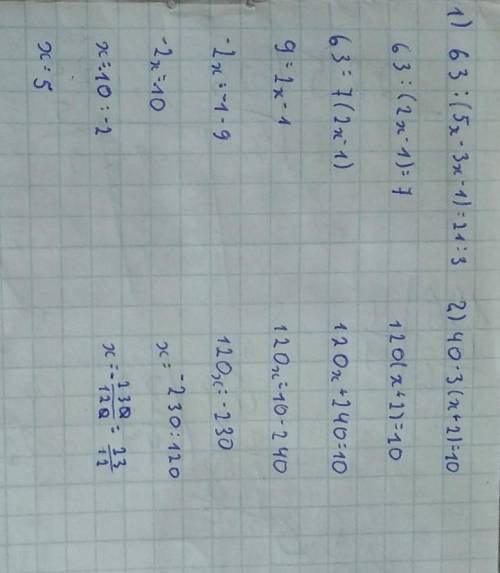 1) 63 : (5x - 3x - 1) = 21 : 3
63 : (2x - 1) = 7
63 = 7(2x - 1)
9 = 2x - 1
-2x = -1 - 9
-2x = 10
x = 10 : -2
x = 5
2) 40 · 3(x + 2) = 10
120(x + 2) = 10
120x + 240 = 10
120x = 10 - 240
120x = -230
x = -230 : 120
x = -230/120 = 23/12